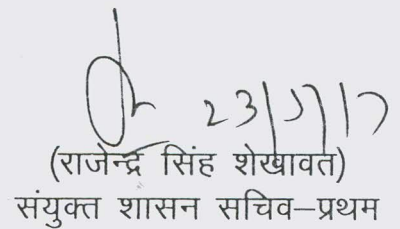 23/5/17
(राजेन्द्र सिंह शेखावत)
संयुक्त शासन सचिव–प्रथम